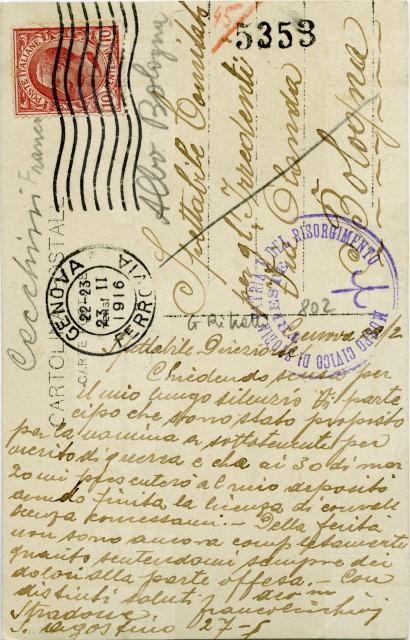 POSTE ITALIANE
10
45
5353
Albo Bologna
Cecchini Franco
Spettabile Comitato
per gl'Irredenti
Bologna
CARTOLINA POSTALE
GENOVA
FERROVIA
22-23
23 II
1916
MUSEO CIVICO DI STORIA PATRIA E DEL RISORGIMENTO
TRIESTE
802
Genova 23/2
Spettabile Direzione
Chiedendo scusa per
il mio lungo silenzio Vi parte
cipo che sono stato proposto
per la nomina a sottotenente per
merito di guerra e che ai 30 di mar
zo mi presenterò al mio deposito
avendo finita la licenza di conval
senza concessami. - Della ferita
non sono ancora completamente
guarito sentendomi sempre dei
dolori alla parte offesa. - Con
distinti saluti
Stradone
S. Agostino 27-5